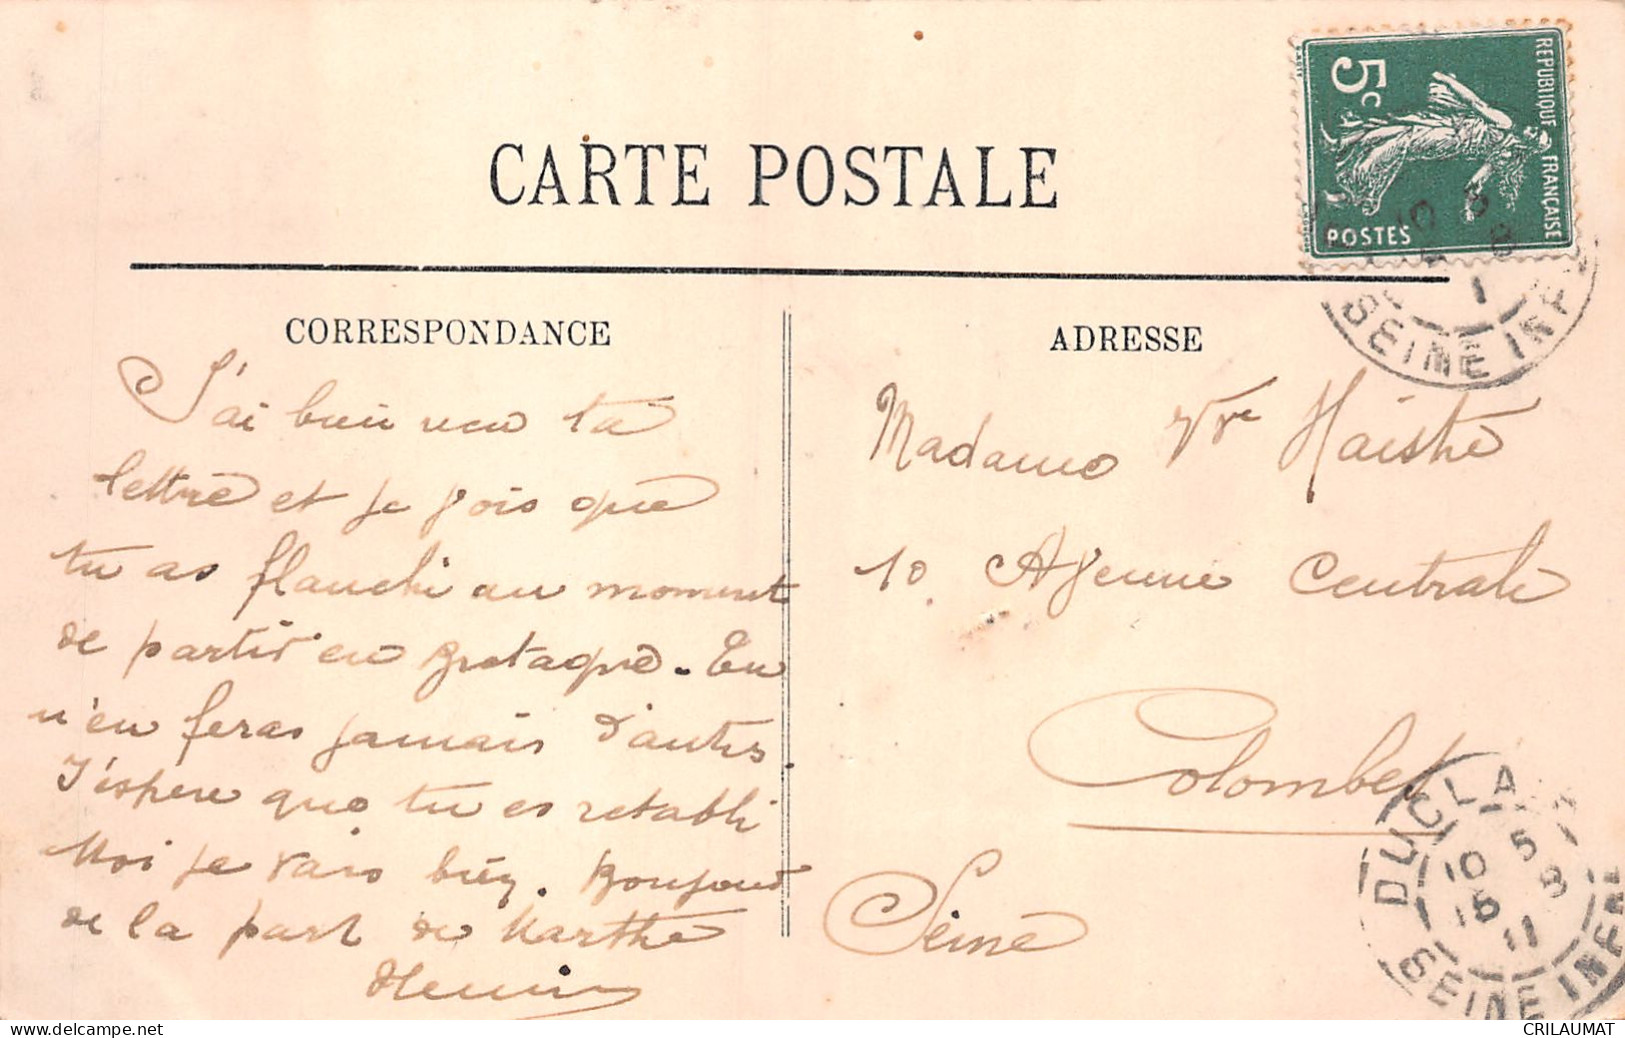 CARTE POSTALE
REPUBLIQUE FRANÇAISE
5c
POSTES
SEINE INF
CORRESPONDANCE
J'ai bien reçu ta
lettre et je vois que
tu as flanché au moment
de partir en Bretagne. Tu
n'en feras jamais d'autres.
J'espere que tu es retabli
Moi je vais bien. Bonjour
de la part de Marthe
Henri
ADRESSE
Madame Vve Maistre
10 Avenue Centrale
Colombes
Seine
DUCLAIR
10 5
15 8
11
SEINE INFRE
CRILAUMAT